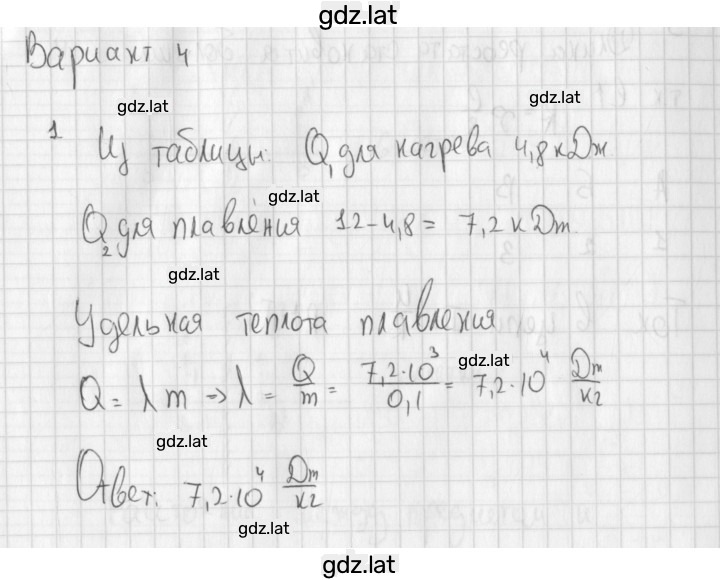 gdz.lat
Вариант 4
gdz.lat
gdz.lat
1 Из таблицы: Q₁ для нагрева 4,8 кДж
gdz.lat
Q₂ для плавления 12-4,8 = 7,2 кДж
gdz.lat
Удельная теплота плавления
Q = λm → λ = Q/m = 7,2·10³/0,1 = 7,2·10⁴ Дж/кг
gdz.lat
gdz.lat
Ответ: 7,2·10⁴ Дж/кг
gdz.lat
gdz.lat